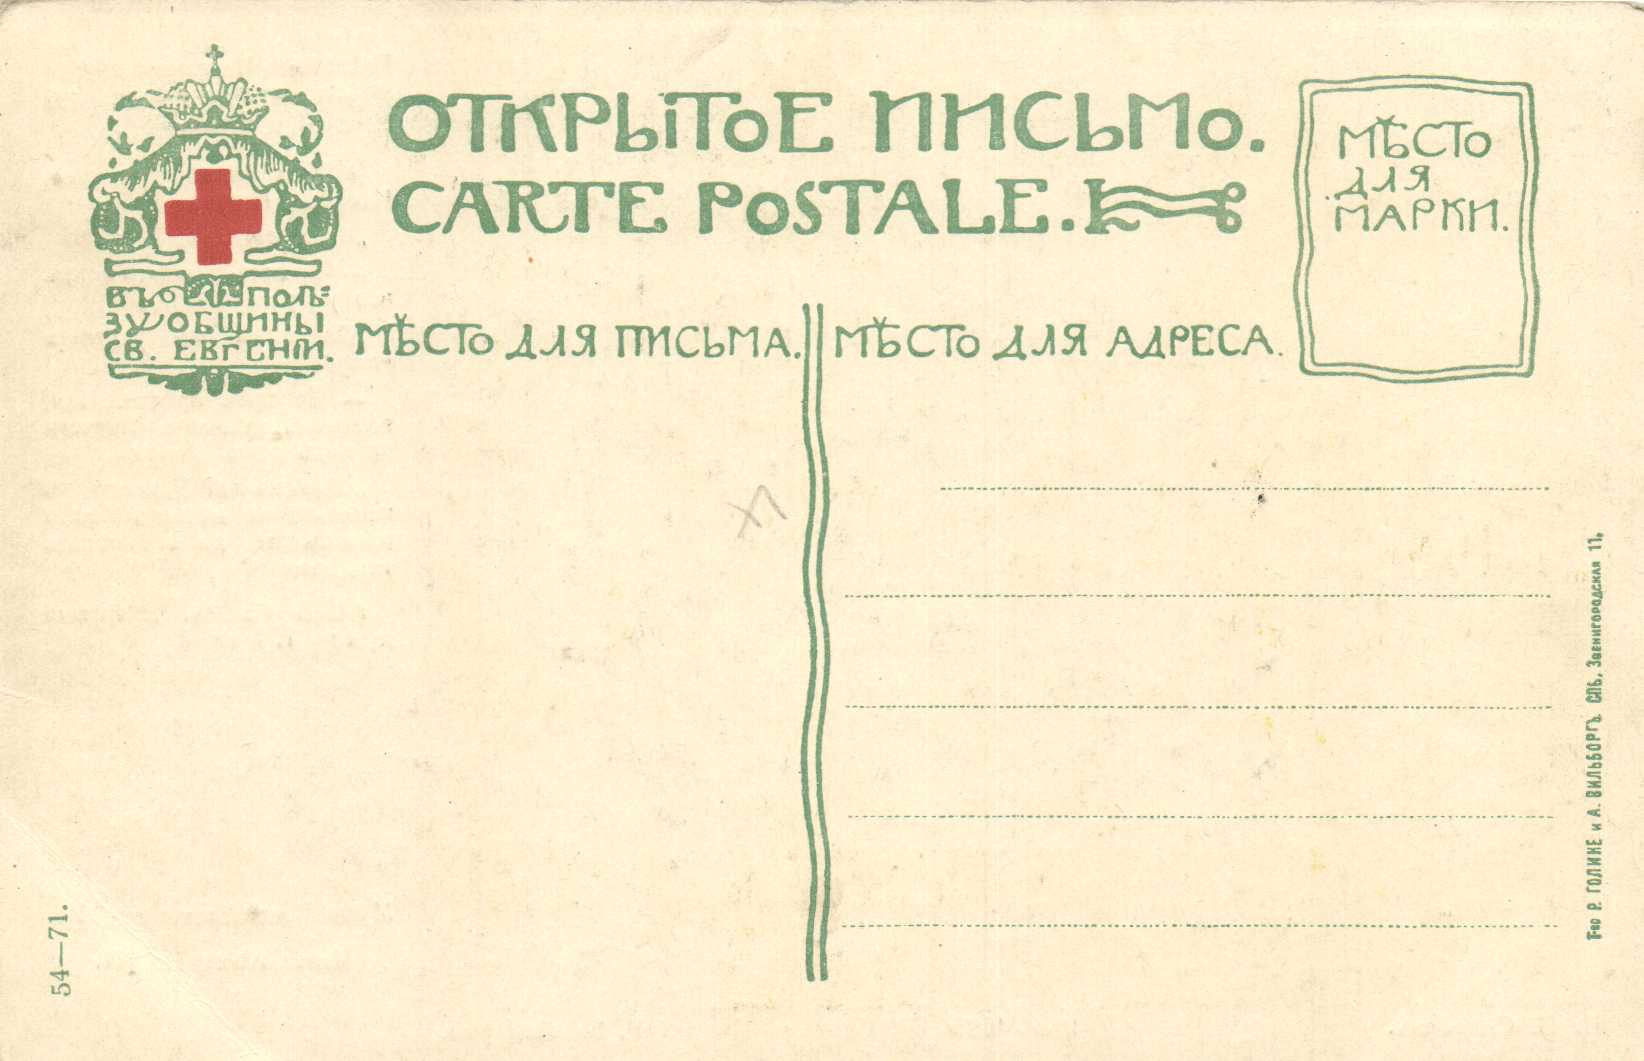 ОТКРЫТОЕ ПИСЬМО.
CARTE POSTALE.
МѢСТО
ДЛЯ
МАРКИ.
ВЪ ПОЛЬ=
ЗУ ОБЩИНЫ
СВ. ЕВГЕНІИ.
МѢСТО ДЛЯ ПИСЬМА.
МѢСТО ДЛЯ АДРЕСА.
54—71.
Т-во Р. ГОЛИКЕ и А. ВИЛЬБОРГЪ. СПБ. Звенигородская 11.